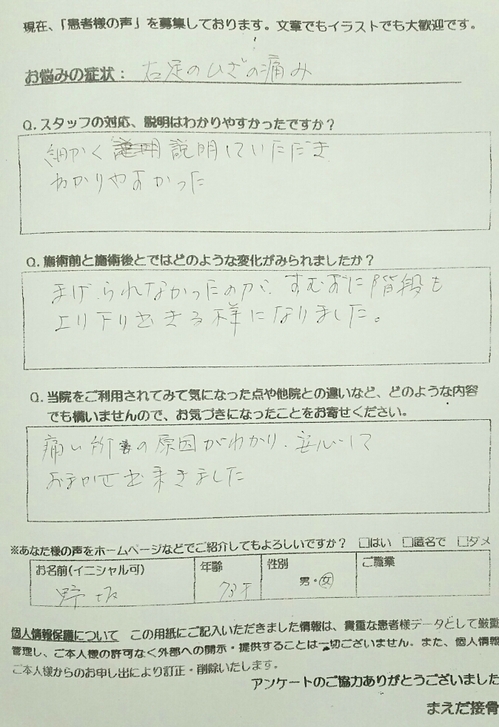 現在、「患者様の声」を募集しております。文章でもイラストでも大歓迎です。
お悩みの症状： 右足のひざの痛み
Q.スタッフの対応、説明はわかりやすかったですか？
細かく 説明していただき
わかりやすかった
Q.施術前と施術後とではどのような変化がみられましたか？
まげられなかったのが、すむずに階段も
上り下り出きる様になりました。
Q.当院をご利用されてみて気になった点や他院との違いなど、どのような内容
でも構いませんので、お気づきになったことをお寄せください。
痛い所の原因がわかり、安心して
おまかせ出来きました
※あなた様の声をホームページなどでご紹介してもよろしいですか？ □はい □匿名で □ダメ
お名前(イニシャル可) 年齢 性別 ご職業
野 73才 男・女
個人情報保護について この用紙にご記入いただきました情報は、貴重な患者様データとして厳重
管理し、ご本人様の許可なく外部への開示・提供することは一切ございません。また、個人情報
ご本人様からのお申し出により訂正・削除いたします。
アンケートのご協力ありがとうございました
まえだ接骨